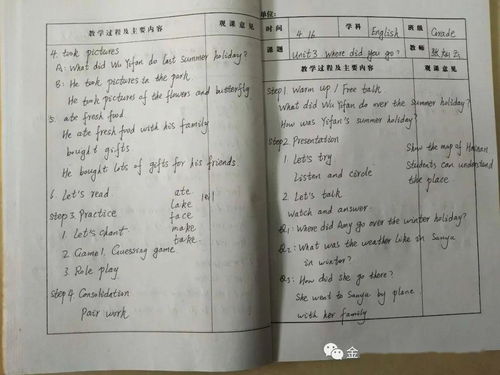 教学过程及主要内容
观课意见
4. took pictures
A: What did Wu Yifan do last summer holiday?
B: He took pictures in the park.
He took pictures of the flowers and butterfly
5. ate fresh food
He ate fresh food with his family
bought gifts
He bought lots of gifts for his friends
6. Let's read
ate
lake
face
make
take
Step 3. Practice
1. Let's chant.
2. Game1. Guessing game
3. Role play
Step 4 Consolidation
Pair work
单位:
时间
4.16
学科
English
班级
Grade
课题
Unit3 Where did you go?
教师
教学过程及主要内容
观课意见
Step1. Warm up / Free talk
What did Wu Yifan do over the summer holiday?
How was Yifan's summer holiday?
Step2. Presentation
1. Let's try
Listen and circle
Show the map of Hainan
Students can understand
the place
2. Let's talk
Watch and answer.
Q1: Where did Amy go over the winter holiday?
Q2: What was the weather like in Sanya
in winter?
Q3: How did she go there?
She went to Sanya by plane
with her family
金